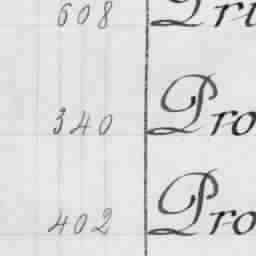 608 Pri
340 Pro
402 Pro